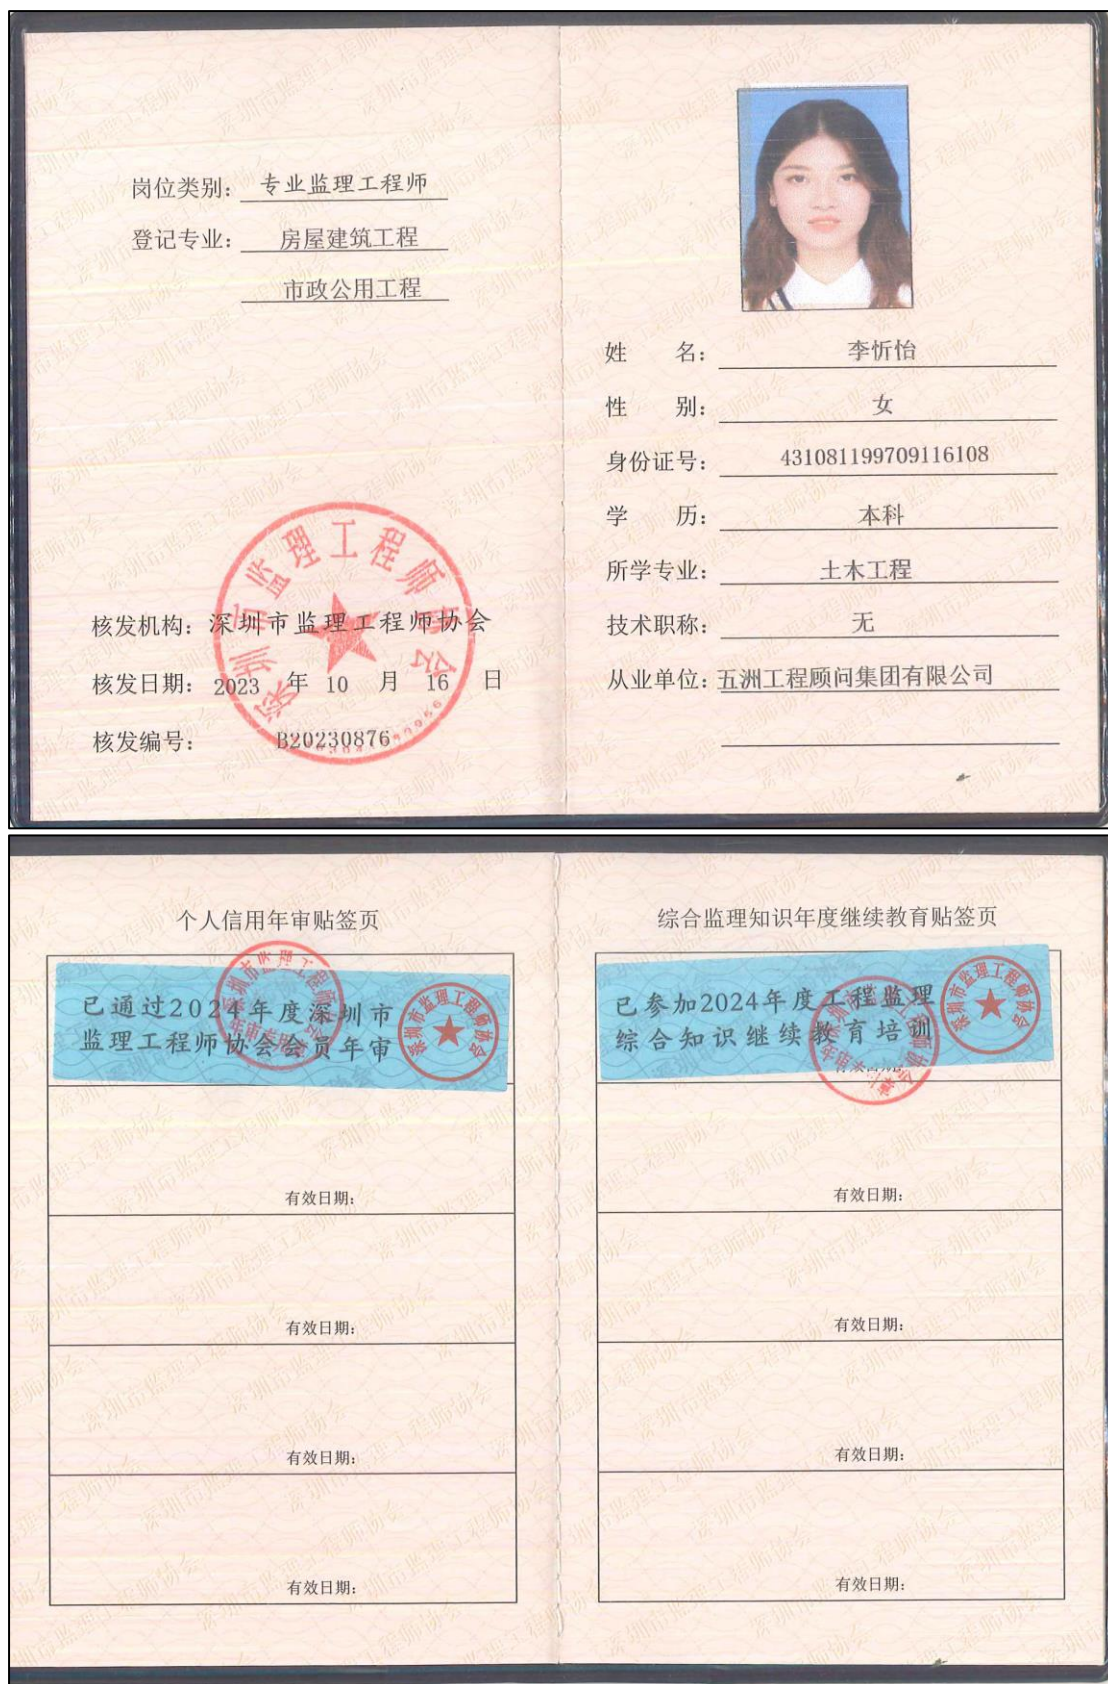 岗位类别: 专业监理工程师
登记专业: 房屋建筑工程
市政公用工程
深圳市监理工程师协会
核发机构: 深圳市监理工程师协会
核发日期: 2023 年 10 月 16 日
核发编号: B20230876
姓 名: 李忻怡
性 别: 女
身份证号: 431081199709116108
学 历: 本科
所学专业: 土木工程
技术职称: 无
从业单位: 五洲工程顾问集团有限公司
个人信用年审贴签页
已通过2024年度深圳市
监理工程师协会会员年审
深圳市监理工程师协会
有效日期:
有效日期:
有效日期:
有效日期:
综合监理知识年度继续教育贴签页
已参加2024年度工程监理
综合知识继续教育培训
深圳市监理工程师协会
有效日期:
有效日期:
有效日期:
有效日期: